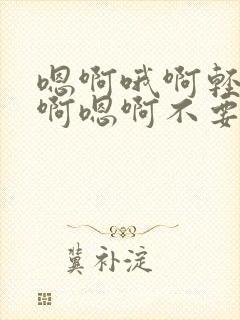 嗯啊哦啊轻
啊嗯啊不要
冀补淀